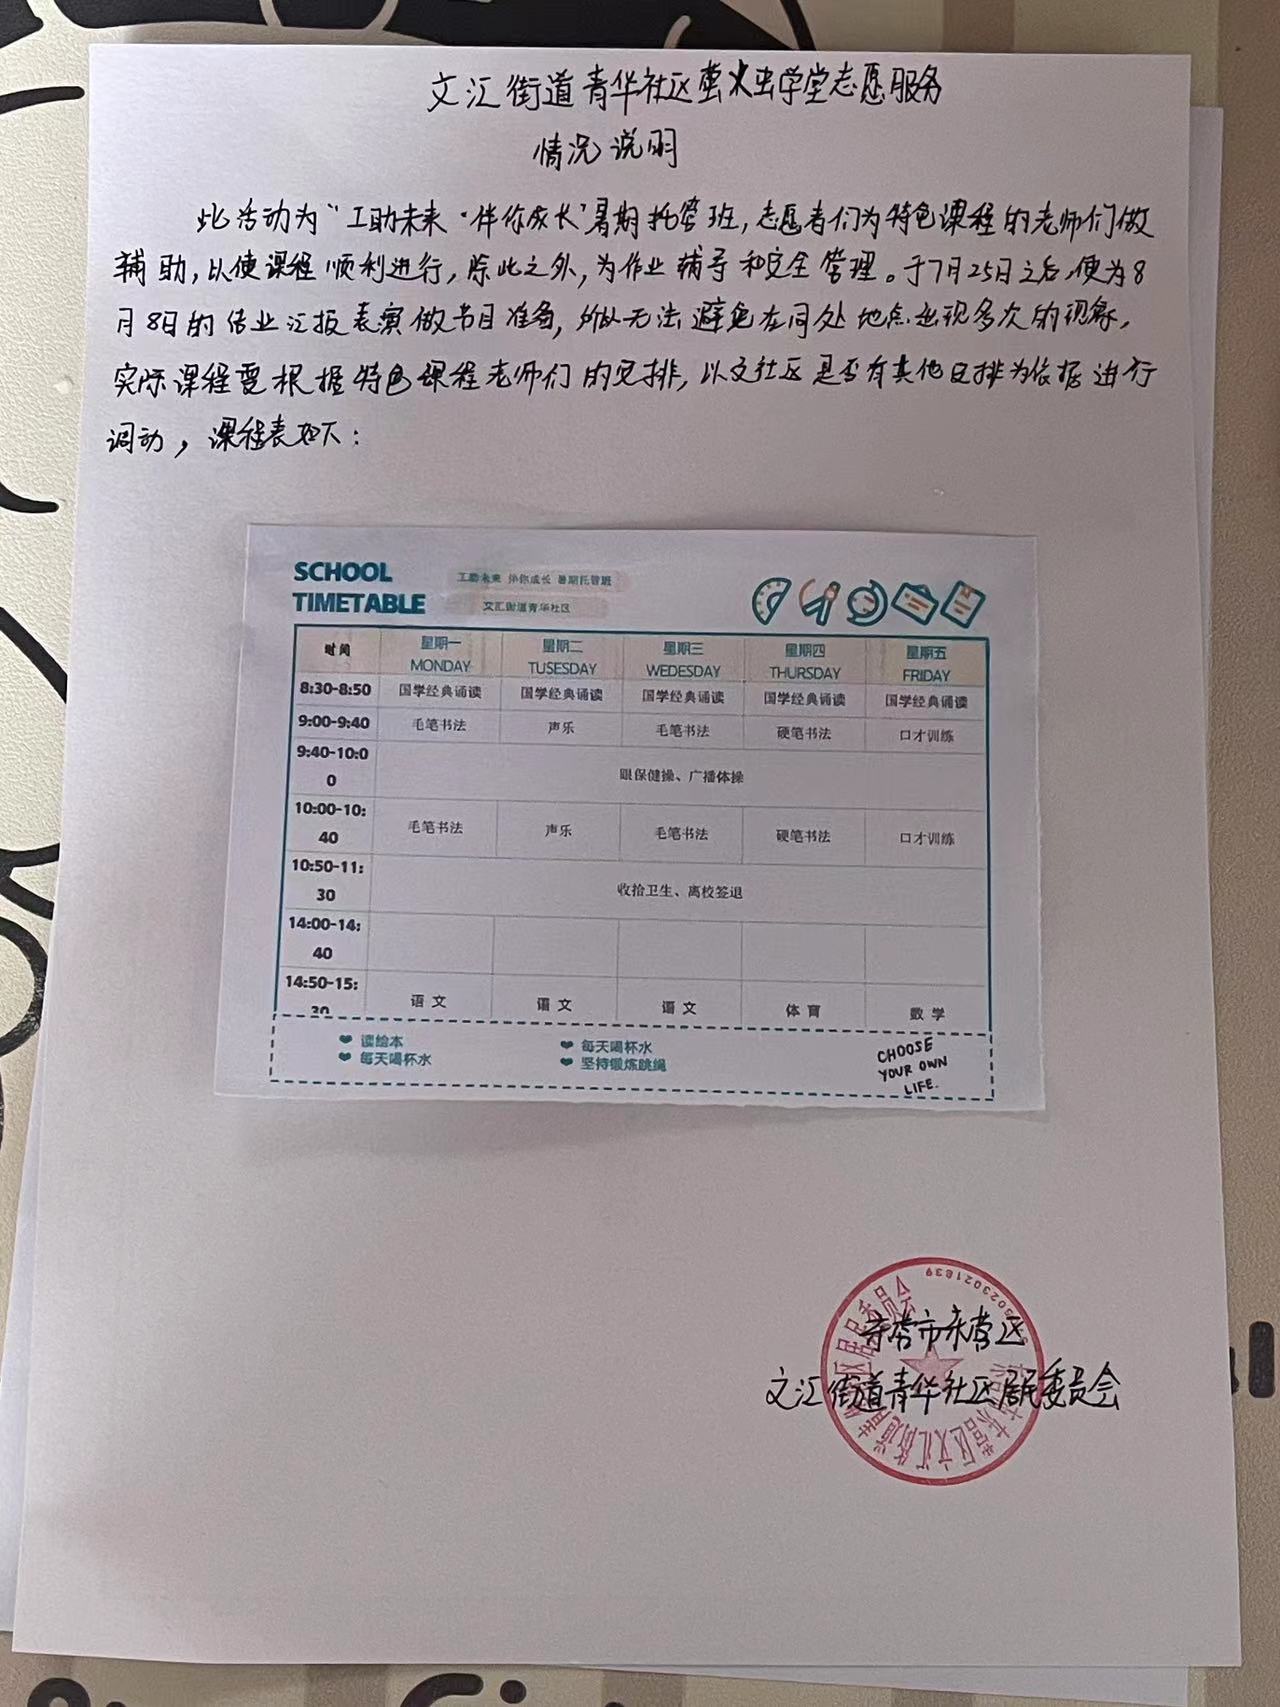 文汇街道青华社区萤火虫学堂志愿服务
情况说明
此活动为“工助未来·伴你成长”暑期托管班,志愿者们为特色课程的老师们做
辅助,以使课程顺利进行,除此之外,为作业辅导和安全管理。于7月25日之后,便为8
月8日的结业汇报表演做节目准备,所以无法避免在同处地点出现多次的现象,
实际课程要根据特色课程老师们的安排,以及社区是否有其他安排为依据进行
调动,课程表如下:
SCHOOL
TIMETABLE
工助未来 伴你成长 暑期托管班
文汇街道青华社区
时间 星期一 星期二 星期三 星期四 星期五
MONDAY TUSESDAY WEDESDAY THURSDAY FRIDAY
8:30-8:50 国学经典诵读 国学经典诵读 国学经典诵读 国学经典诵读 国学经典诵读
9:00-9:40 毛笔书法 声乐 毛笔书法 硬笔书法 口才训练
9:40-10:0
0
眼保健操、广播体操
10:00-10:
40
毛笔书法 声乐 毛笔书法 硬笔书法 口才训练
10:50-11:
30
收拾卫生、离校签退
14:00-14:
40
14:50-15:
30
语文 语文 语文 体育 数学
❤ 读绘本 ❤ 每天喝杯水
❤ 每天喝杯水 ❤ 坚持锻炼跳绳
CHOOSE
YOUR OWN
LIFE.
东营市东营区
文汇街道青华社区居民委员会